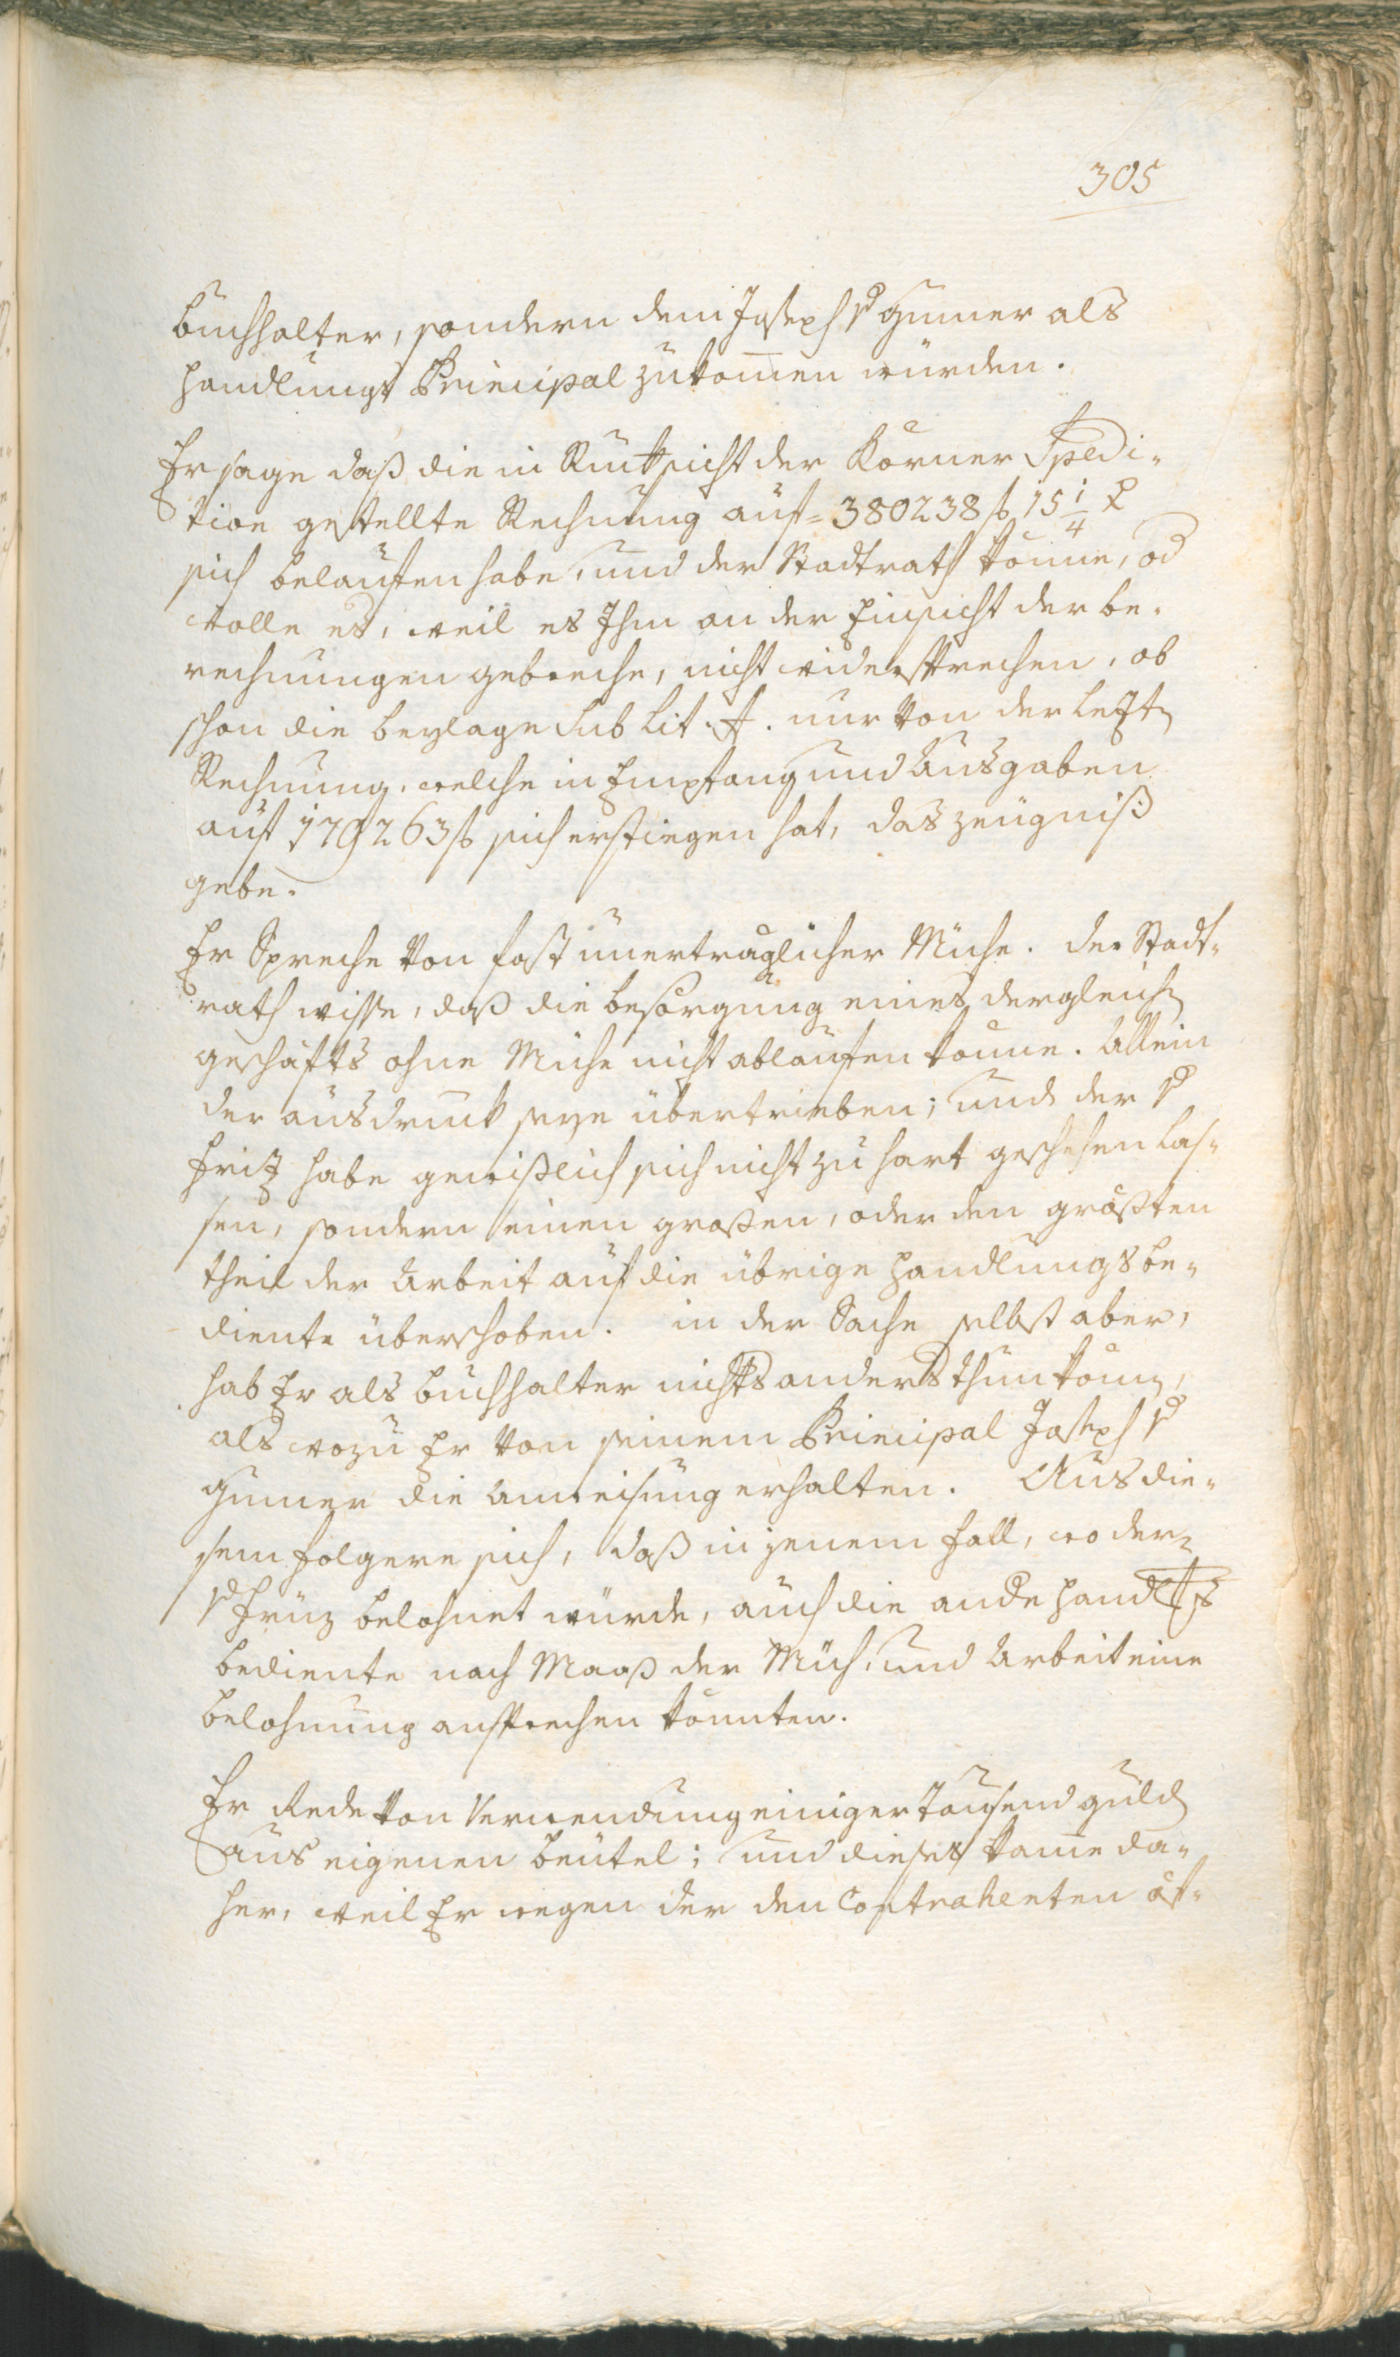 305
Buchhalter, sondern dem Joseph v Gumer als
Handlungs Principal zukomen würden.
Er sage daß die in Rücksicht der Körner Spedi-
tion gestellte Rechnung auf = 380238 f 15 1/4 x
sich belaufen habe, und der Stadtrath könne, od
wolle es, weil es Ihm an der Einsicht der be-
rechnungen gebreche, nicht widersprechen, ob
schon die beylage sub Lit. A. nur von der letzt
Rechnung, welche in Empfang und Ausgaben
auf 179263 f sich erstiegen hat, das zeugniß
gebe.
Er Spreche von fast unerträglicher Mühe. der Stadt-
rath wisse, daß die besorgung eines dergleich
geschäfts ohne Mühe nicht ablaufen könne. Allein
der ausdruck seye übertrieben; und der v
Fritz habe gewißlich sich nicht zu hart geschehen las-
sen, sondern einen großen, oder den größten
theil der Arbeit auf die übrige Handlungsbe-
diente überschoben. in der Sache selbst aber,
hab Er als buchhalter nichts anders thun könn,
als wozu Er von seinem Principal Joseph v
Gumer die anweisung erhalten. Aus die-
sem folgere sich, daß in jenem fall, wo der
v Friz belohnet würde, auch die ande Handlgs
bediente nach Maaß der Müh, und Arbeit eine
belohnung ansprechen könnten.
Er Rede von Verwendung einiger Tausend guld
aus eigenen beutel; und dieses kame da-
her, weil Er wegen der den Contrahenten öf-